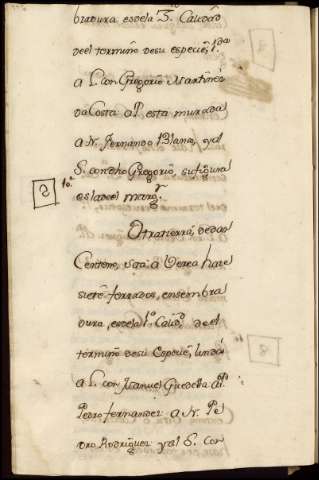 bradura, es de la 3ª Calidad
de el termino de su especie, linda
a L. con Gregorio Martinez
da Costa a P. esta murada
a N. Fernando Blanco, y al
S. con dho Gregorio, su figura
es la de el marg.n
10. Otra tierra, de dao
Centeno, sita a Verea, hace
siete ferrados, en sembra
dura, es de la 1ª Calid.d de el
termino de su Especie, linda
a L. con Manuel Guedella a P.
Pedro fernandez a N. Pe
dro Rodriguez y al S. con